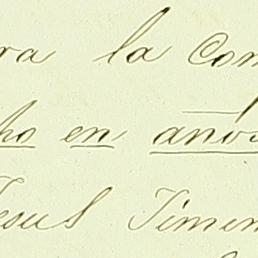 ra la Com
ho en años
Jesus Jimen